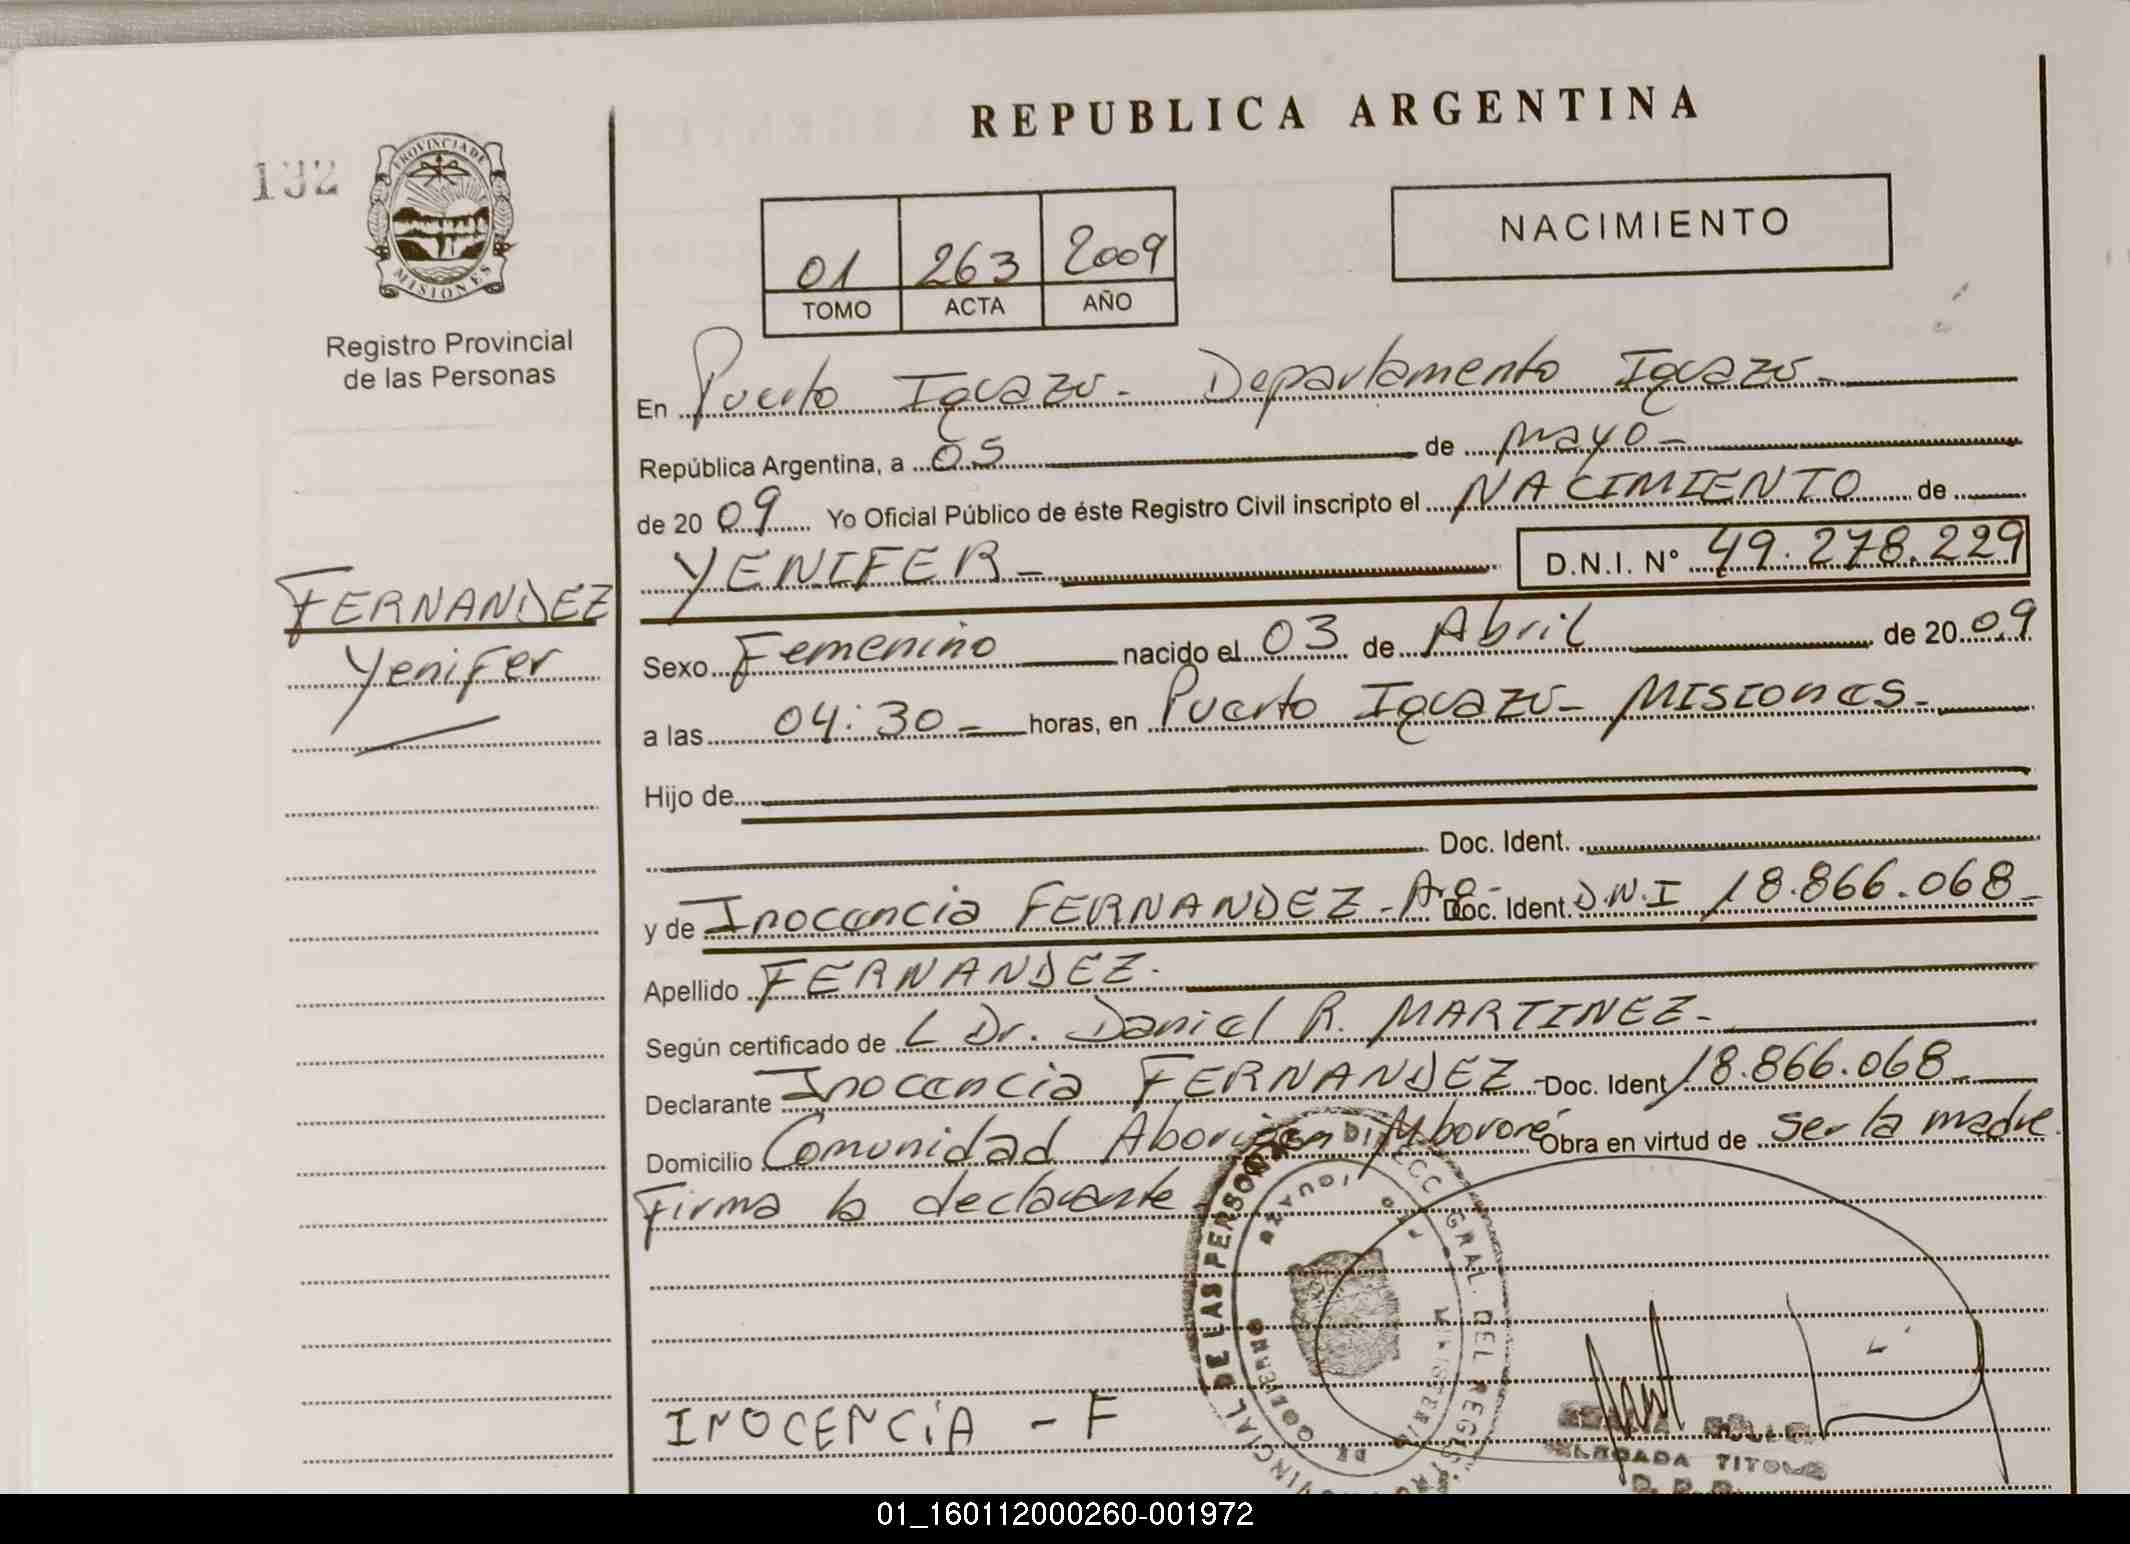 REPUBLICA ARGENTINA
132
PROVINCIA DE
MISIONES
Registro Provincial
de las Personas
01 263 2009
TOMO ACTA AÑO
NACIMIENTO
En Puerto Iguazú - Departamento Iguazú -
República Argentina, a 05 de mayo -
de 20 09 Yo Oficial Público de éste Registro Civil inscripto el NACIMIENTO de
YENIFER - D.N.I. Nº 49.278.229
FERNANDEZ
Yenifer
Sexo Femenino nacido el 03 de Abril de 20 09
a las 04:30 - horas, en Puerto Iguazú - MISIONES -
Hijo de
Doc. Ident.
y de Inocencia FERNANDEZ - Arg - Doc. Ident. D.N.I 18.866.068 -
Apellido FERNANDEZ -
Según certificado de L Dr. Daniel R. MARTINEZ -
Declarante Inocencia FERNANDEZ - Doc. Ident 18.866.068 -
Domicilio Comunidad Aborigen Mbororé Obra en virtud de ser la madre.
Firma la declarante
DIRECC. GRAL. DEL REGIS PROVINCIAL DE LAS PERSONAS
MINISTERIO DE GOBIERNO
PTO IGUAZU
INOCENCiA - F
DELEGADA TITULAR
01_160112000260-001972